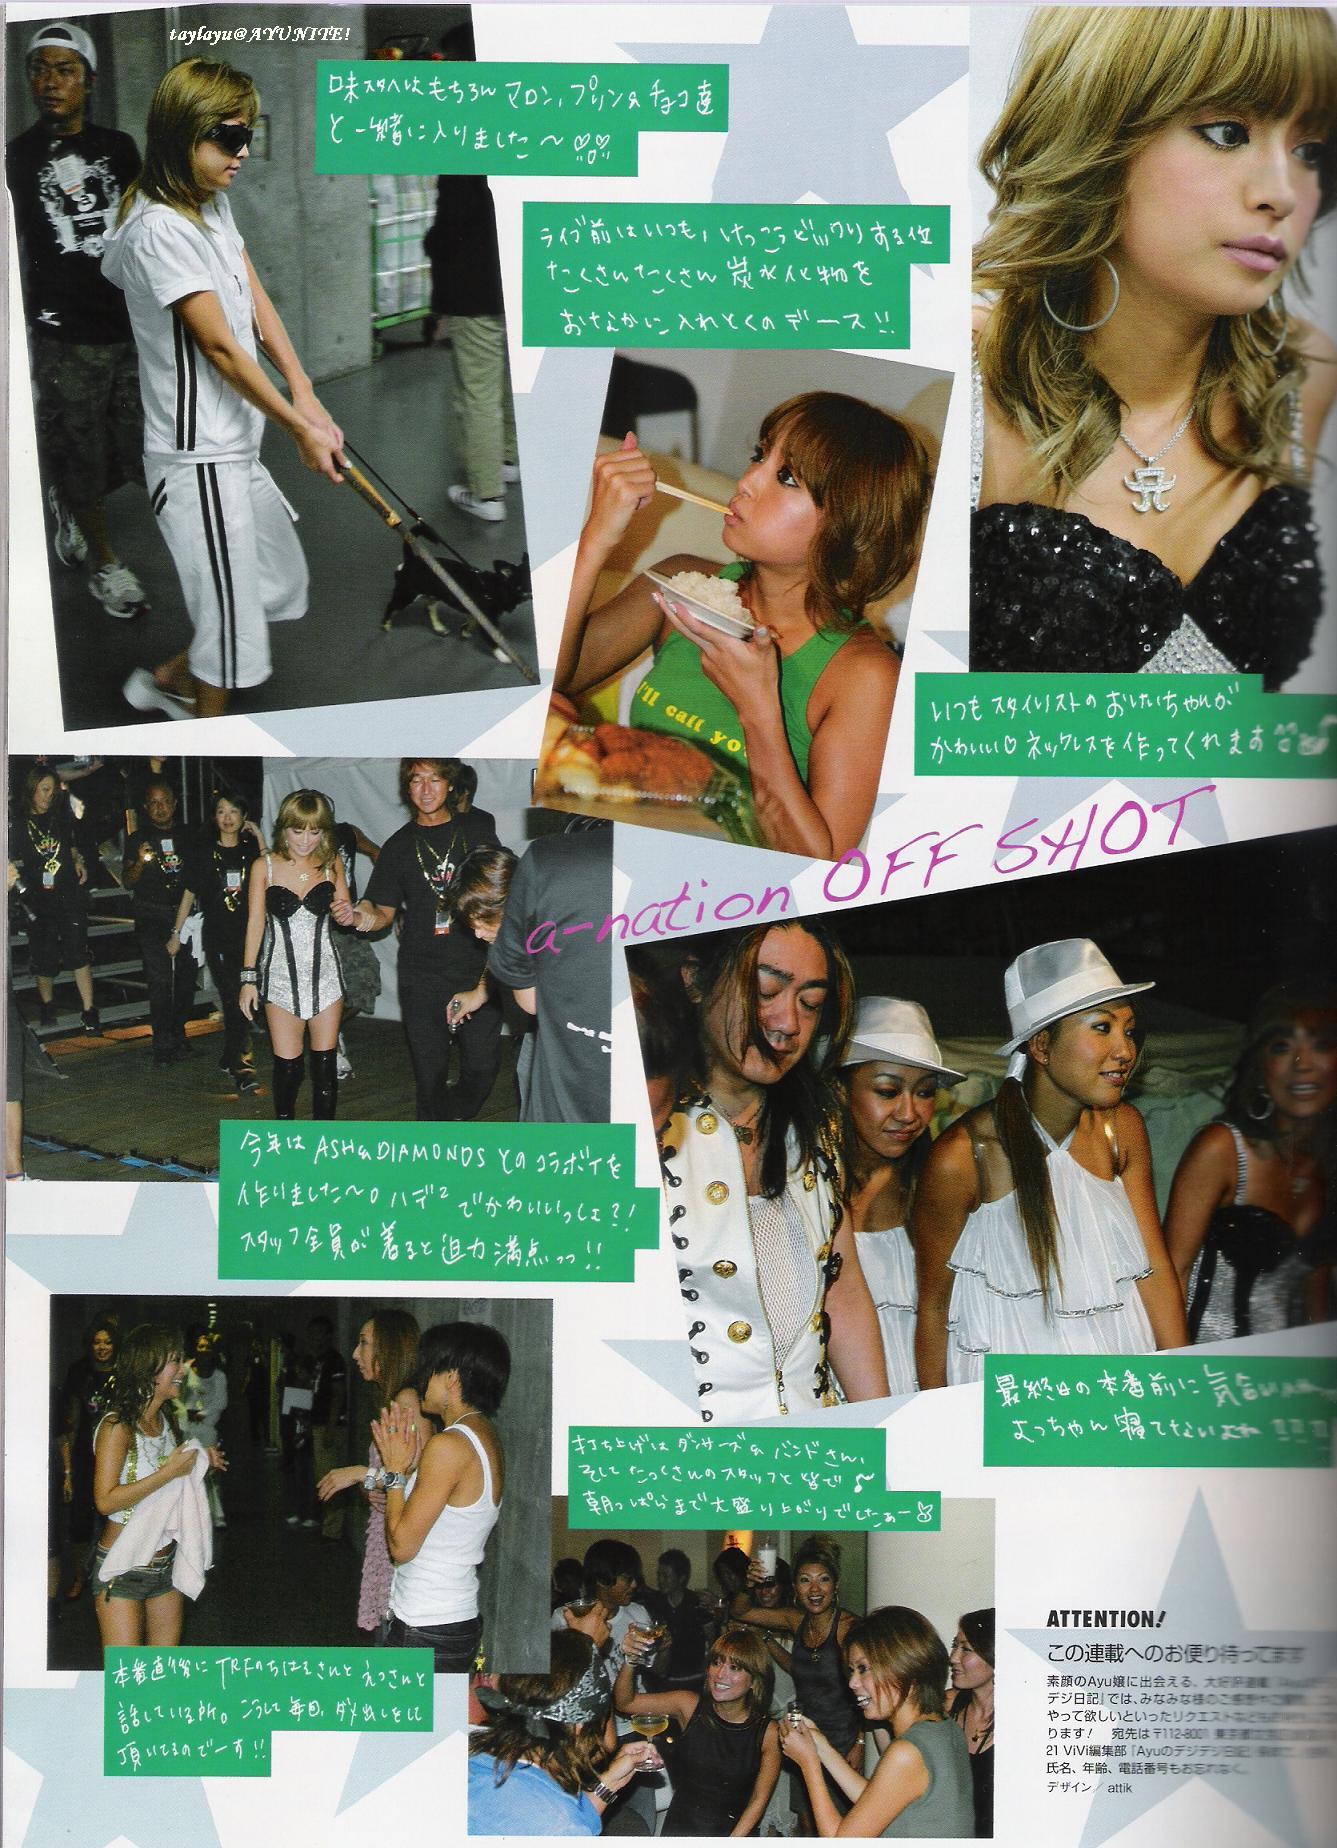 taylayu@AYUNITE!
味スタへはもちろん マロン、プリン&チョコ達
と一緒に入りました〜
ライブ前はいつも、けっこうビックリする位
たくさんたくさん 炭水化物を
おなかに入れとくのデース!!
I'll call yo
いつもスタイリストの おしだちゃんが
かわいい♡ ネックレスを作ってくれます
a-nation OFF SHOT
今年は ASH&DIAMONDS とのコラボTを
作りました〜。ハデ²でかわいいっしょ?!
スタッフ全員が着ると迫力満点っっ!!
最終日の本番前に気合い
よっちゃん寝てないよね !!!
打ち上げはダンサーズ&バンドさん、
そしてたっくさんのスタッフと皆で♪
朝っぱらまで大盛り上がりでしたぁー
本番直後に TRFのちはるさんと えつさんと
話している所。こうして毎回、ダメ出しをして
頂いてるのでーす!!
ATTENTION!
この連載へのお便り待ってます
素顔のAyu嬢に出会える、大好評連載
デジ日記』では、みなみな様のご感想や
やって欲しいといったリクエストなども
ります! 宛先は〒112-8001 東京都文京区
21 ViVi編集部「Ayuのデジデジ日記」
氏名、年齢、電話番号もお忘れなく。
デザイン／attik